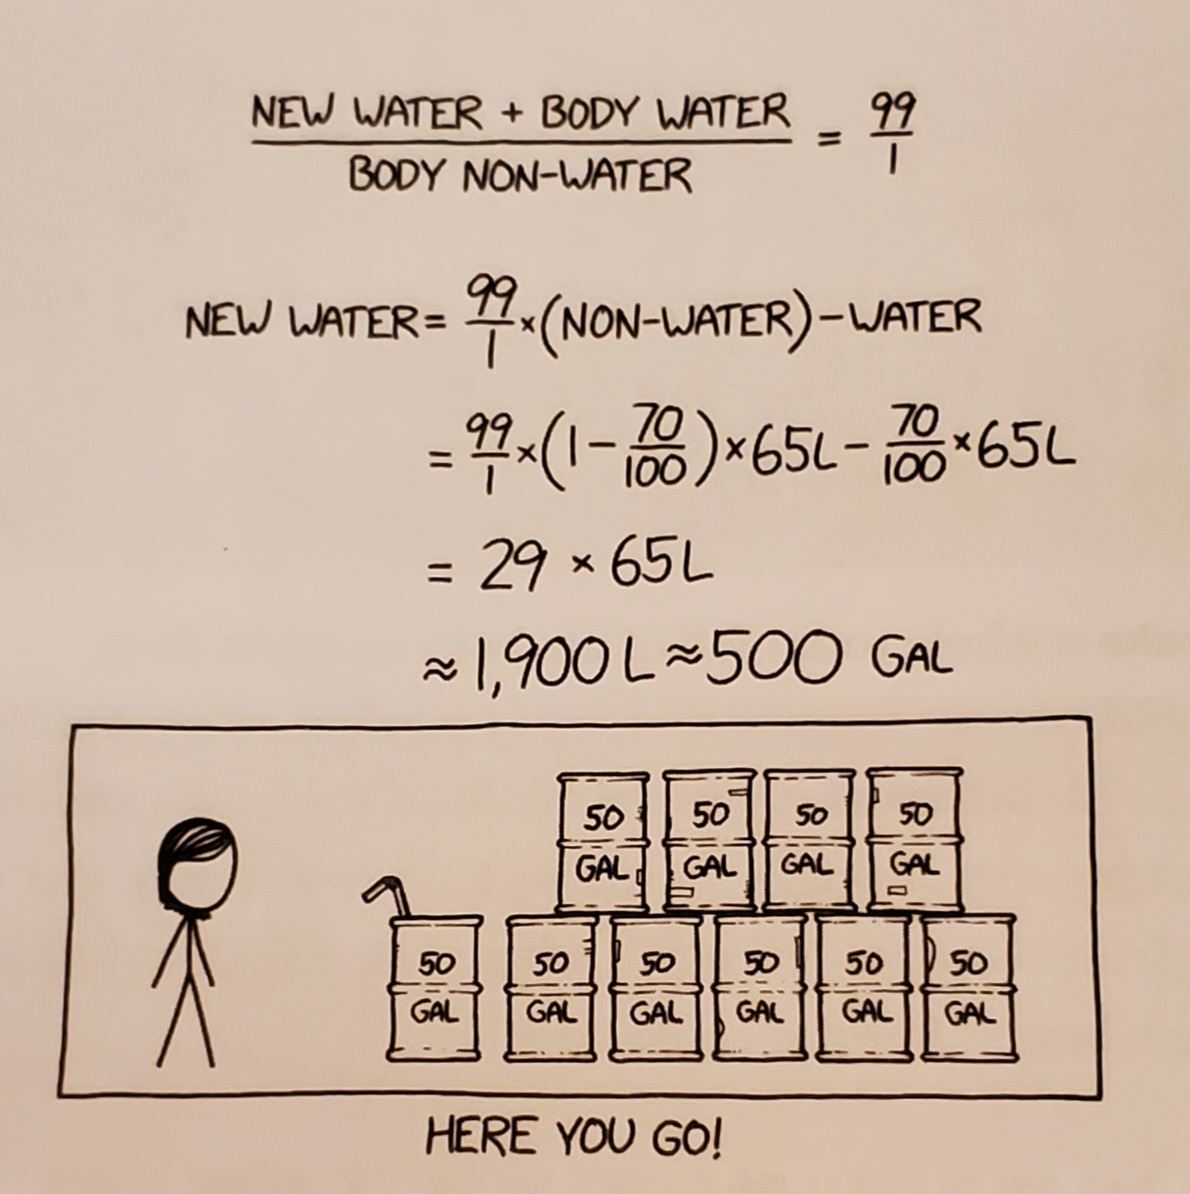 NEW WATER + BODY WATER
BODY NON-WATER
= 99/1
NEW WATER = 99/1 × (NON-WATER) − WATER
= 99/1 × (1 − 70/100) × 65L − 70/100 × 65L
= 29 × 65L
≈ 1,900 L ≈ 500 GAL
50 GAL
50 GAL
50 GAL
50 GAL
50 GAL
50 GAL
50 GAL
50 GAL
50 GAL
50 GAL
HERE YOU GO!